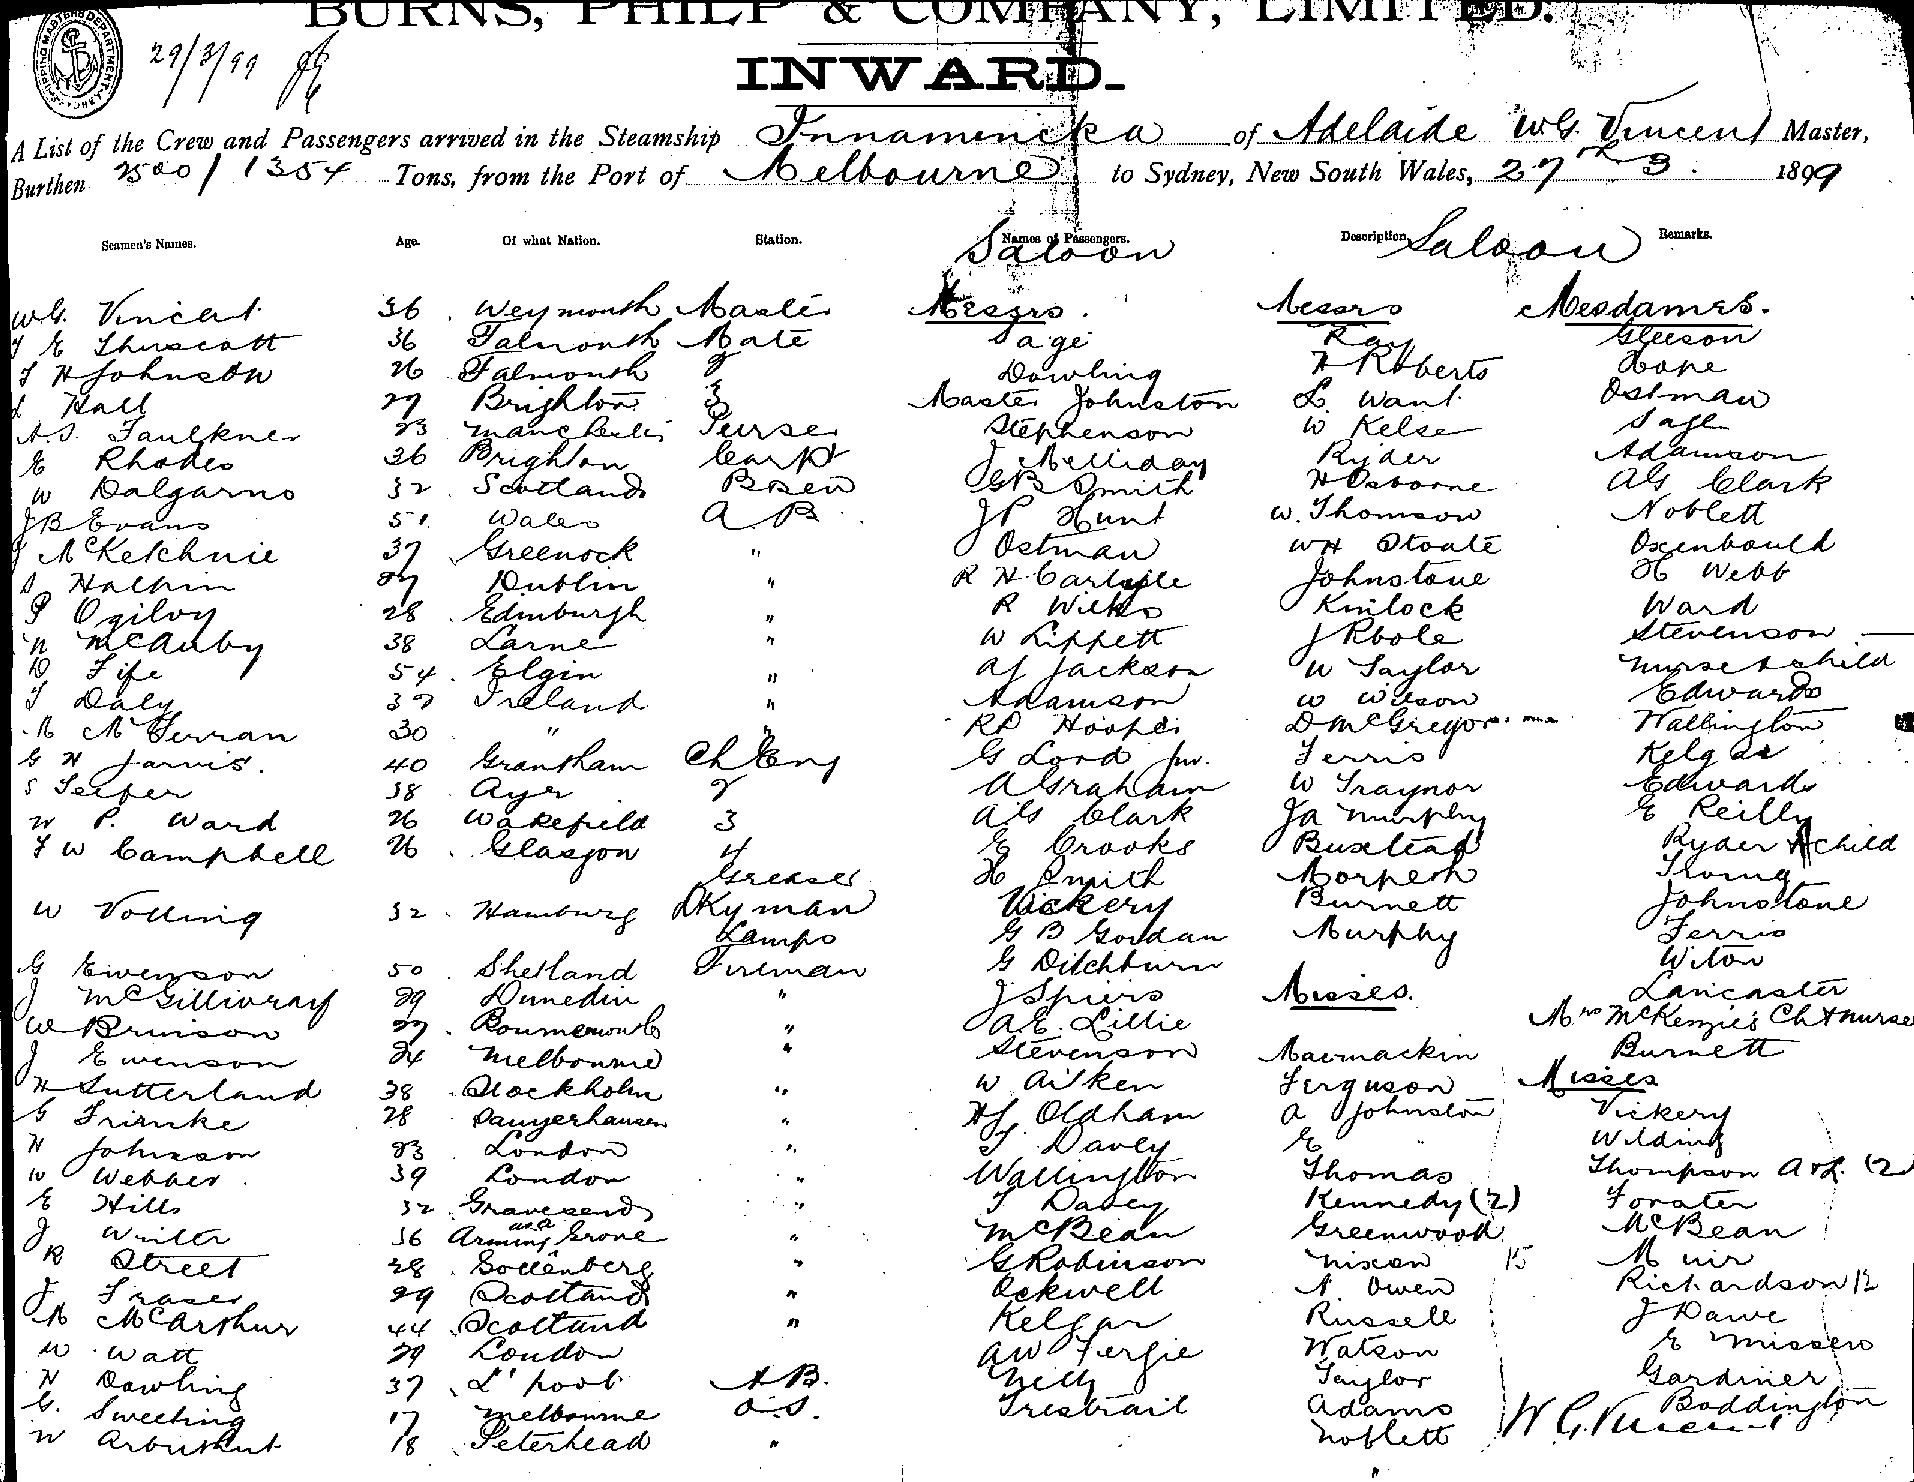 BURNS, PHILP & COMPANY, LIMITED.
29/3/99
INWARD.
A List of the Crew and Passengers arrived in the Steamship Innamincka of Adelaide W.G. Vincent Master,
Burthen 2500/1354 Tons, from the Port of Melbourne to Sydney, New South Wales, 27th 3. 1899
Seamen's Names. Age. Of what Nation. Station. Names of Passengers. Description Remarks.
Saloon Saloon
W.G. Vincent 36 Weymouth Master Messrs. Messrs Mesdames.
36 Falmouth Mate Sage Ray Gleeson
H Johnson 26 Falmouth 2 Dowling H Roberts Hope
Hall 29 Brighton 3 Master Johnston L. Want Ostman
A.S. Faulkner 23 Manchester Purser Stephenson W Kelse Sage
E Rhodes 36 Brighton Carptr J Melliday Ryder Adamson
W Dalgarno 32 Scotland Bosen G B Smith H Osborne AG Clark
J B Evans 51 Wales A B J P Hunt W. Thomson Noblett
McKetchnie 37 Greenock " Ostman WH Stoate Oxenbould
Halpin 27 Dublin " R H Carlyle Johnstone H Webb
P Ogilvy 28 Edinburgh " R Wilks Kinlock Ward
N McAuby 38 Larne " W Lippett J R Poole Stevenson
D Fife 54 Elgin " AJ Jackson W Taylor nurse & child
T Daly 32 Ireland " Adamson W Wilson Edwards
M McFerran 30 " " RP Hooper D McGregor Wallington
G H Jarvis. 40 Grantham Ch Eng G Lord Jnr. Ferris Kelgar
38 Ayr 2 A Graham W Traynor Edwards
W P. Ward 26 Wakefield 3 AG Clark Ja Murphy E Reilly
F W Campbell 26 Glasgow 4 E Crooks Buxtead Ryder & child
Greaser H Smith Morpeth Irving
W Volling 32 Hamburg Dkyman Vickery Burnett Johnstone
Lamps G B Gordan Murphy Ferris
G Ewenson 50 Shetland Fireman G Ditchburn Wilton
J McGillivray 29 Dunedin " J Spiers Misses. Lancaster
W Brunson 27 Bournemouth " A.E. Lillie Mrs McKenzie's Ch & nurse
J Ewenson 24 Melbourne " Stevenson Macmackin Burnett
H Sutterland 38 Stockholm " W Aitken Ferguson Misses
G Frinke 28 Sangerhausen " HJ Oldham A Johnston Vickery
H Johnson 23 London " T Davey E " Wilding
W Webber 39 London " Wallington Thomas Thompson A & L. (2
E Hills 32 Gravesend " T Davey Kennedy (2) Forster
J Winter 36 Grove " McBean Greenwood McBean
R Street 28 Gottenberg " G Robinson Nixon 15 Muir
J Fraser 29 Scotland " Ockwell N. Owen Richardson 12
M McArthur 44 Scotland " Kelgar Russell J Dawe
W Watt 29 London AW Fergie Watson E Missen
H Dowling 37 L'pool A B. Nelly Taylor Gardiner
G. Sweeting 17 Melbourne O.S. Trestrail Adams Boddington
W Arbuthnt 18 Peterhead " Noblett W G. Vincent